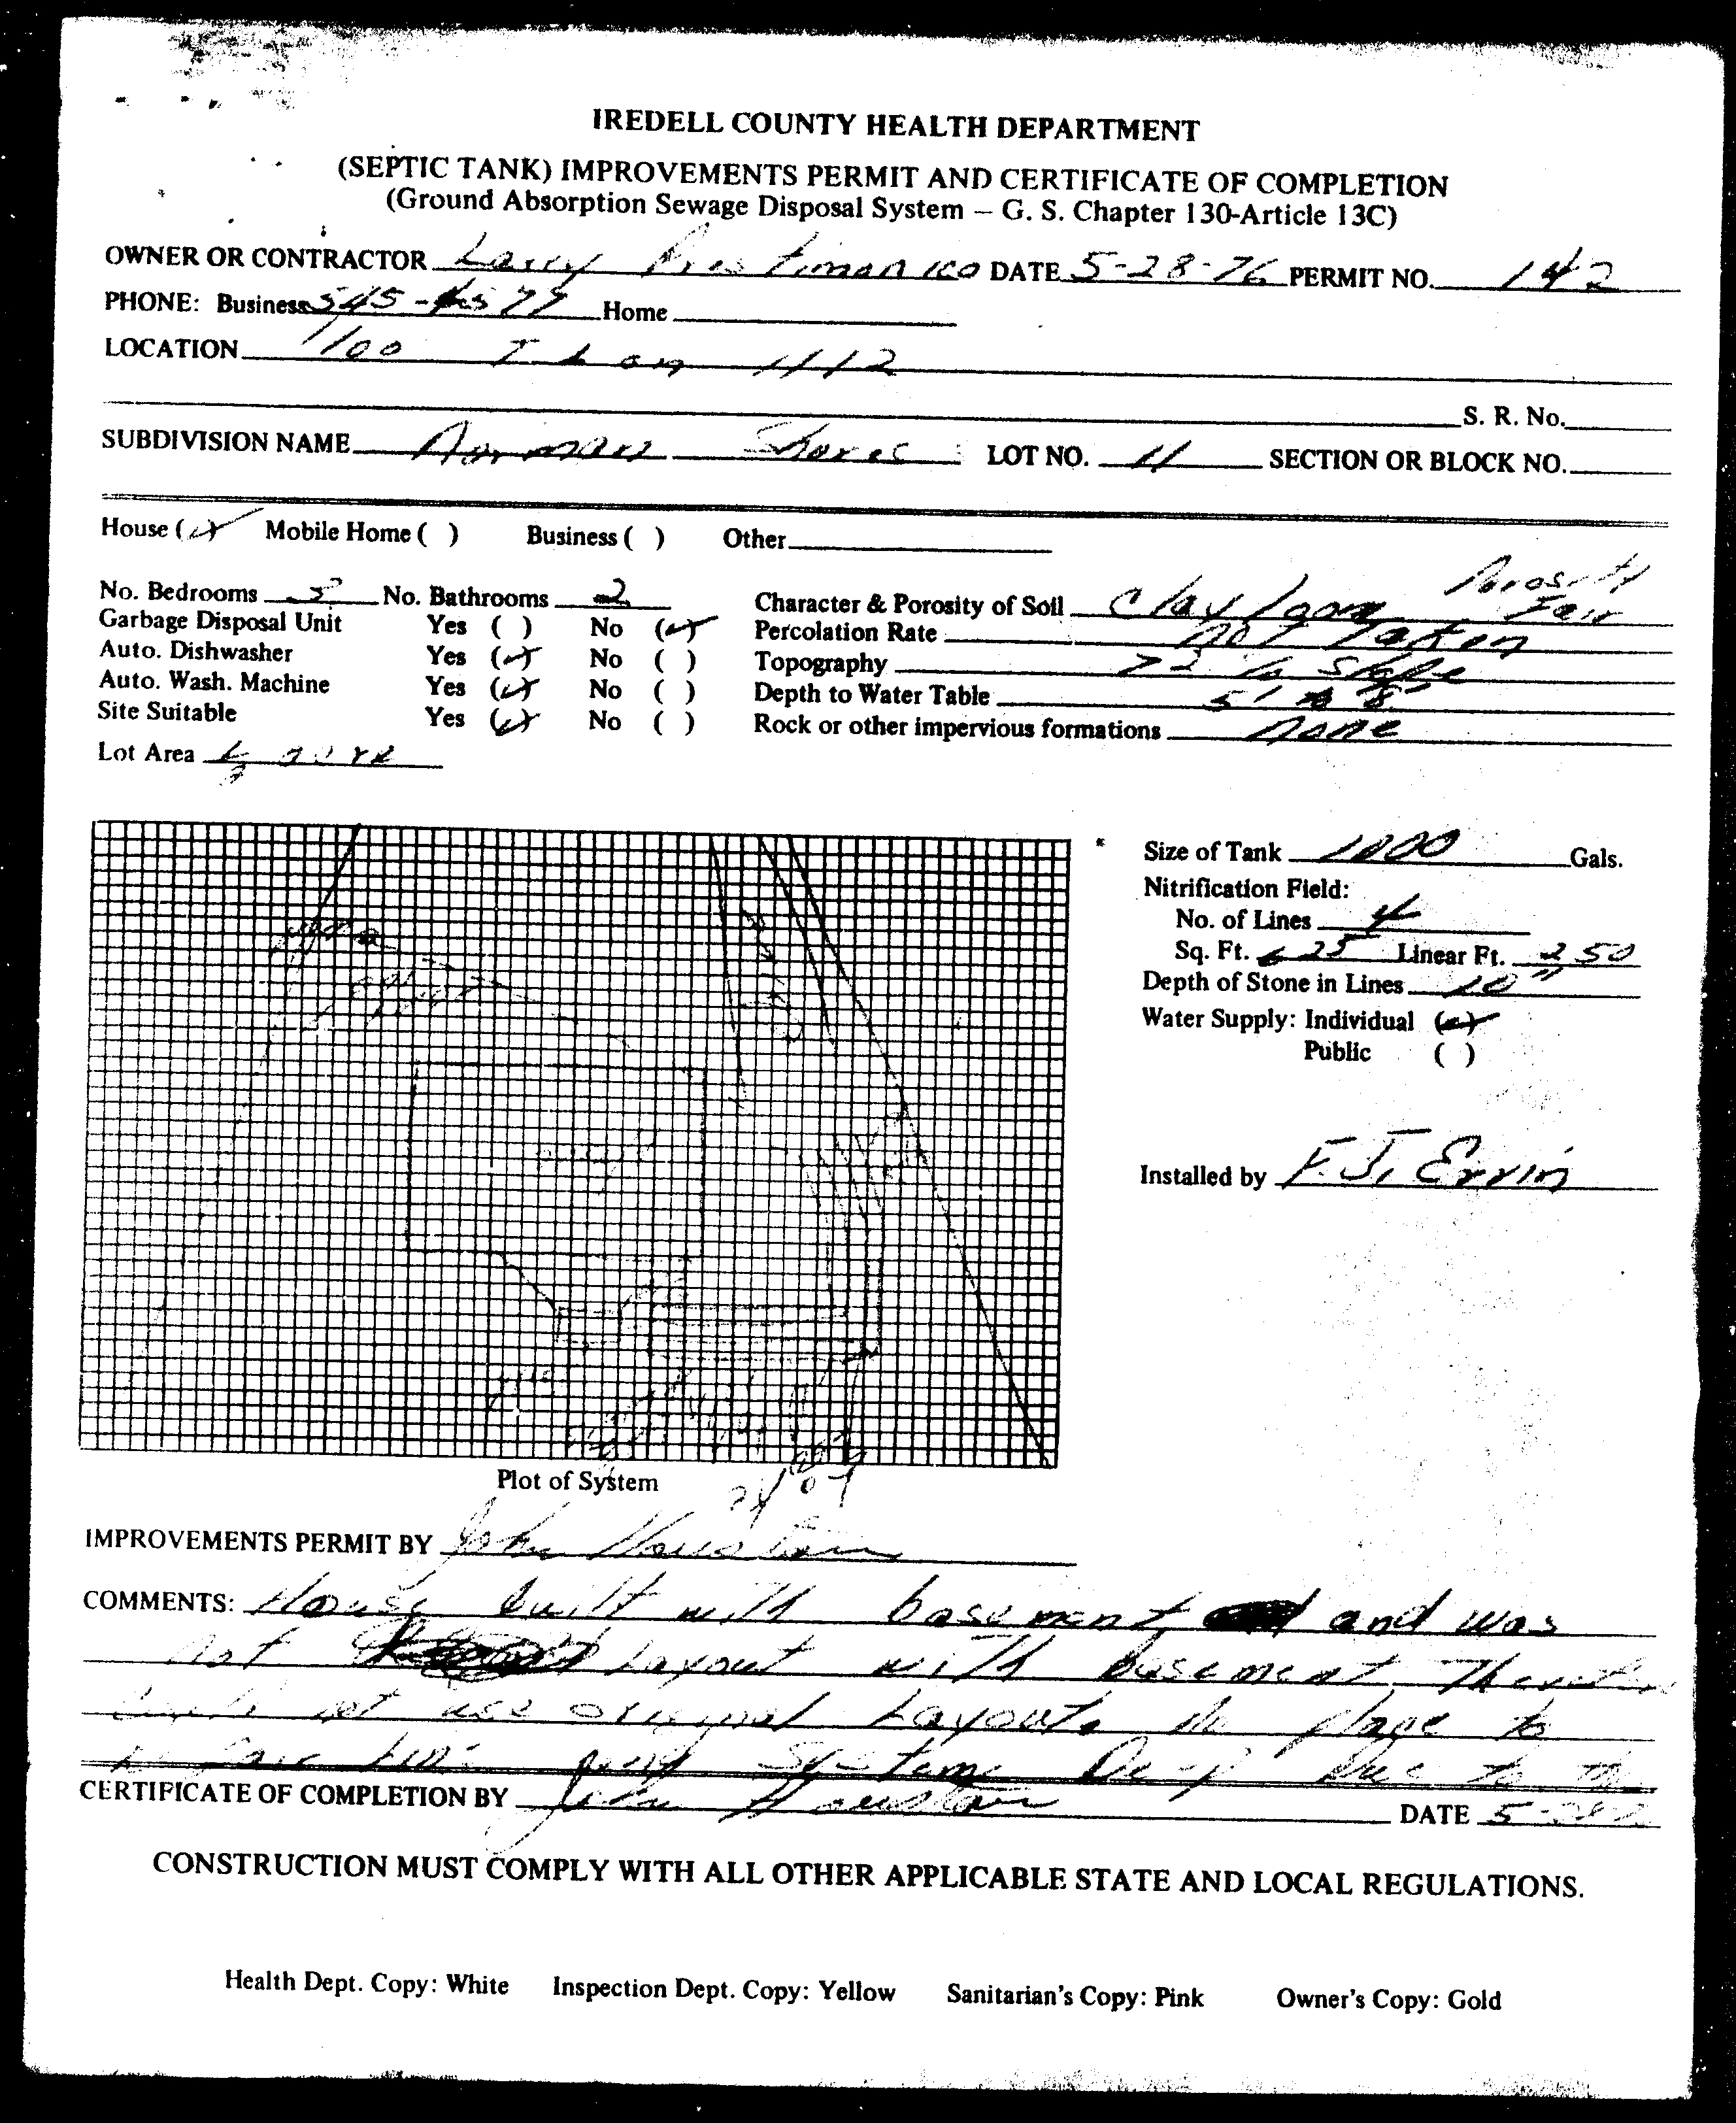 IREDELL COUNTY HEALTH DEPARTMENT
(SEPTIC TANK) IMPROVEMENTS PERMIT AND CERTIFICATE OF COMPLETION
(Ground Absorption Sewage Disposal System – G. S. Chapter 130-Article 13C)
OWNER OR CONTRACTOR Larry DATE 5-28-76 PERMIT NO. 142
PHONE: Business Home
LOCATION 1100 T L on 1112
S. R. No.
SUBDIVISION NAME Norman Shores LOT NO. 11 SECTION OR BLOCK NO.
House (✓) Mobile Home ( ) Business ( ) Other
Porosity
No. Bedrooms 3 No. Bathrooms 2 Character & Porosity of Soil Clay loam Fair
Garbage Disposal Unit Yes ( ) No (✓) Percolation Rate not Taken
Auto. Dishwasher Yes (✓) No ( ) Topography slope
Auto. Wash. Machine Yes (✓) No ( ) Depth to Water Table 5' 8'
Site Suitable Yes (✓) No ( ) Rock or other impervious formations none
Lot Area
Size of Tank 1000 Gals.
Nitrification Field:
No. of Lines 4
Sq. Ft. 625 Linear Ft. 250
Depth of Stone in Lines 10"
Water Supply: Individual (✓)
Public ( )
Installed by F. J. Ervin
Plot of System
IMPROVEMENTS PERMIT BY John
COMMENTS: House built with basement and was
not Layout with basement
not use original Layout. No place to
System Deep Due to the
CERTIFICATE OF COMPLETION BY John DATE
CONSTRUCTION MUST COMPLY WITH ALL OTHER APPLICABLE STATE AND LOCAL REGULATIONS.
Health Dept. Copy: White Inspection Dept. Copy: Yellow Sanitarian's Copy: Pink Owner's Copy: Gold